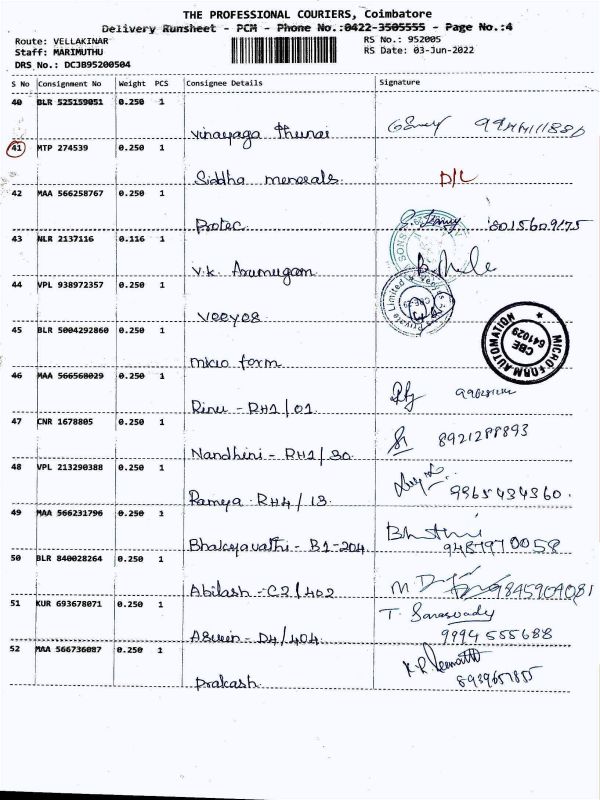 THE PROFESSIONAL COURIERS, Coimbatore
Delivery Runsheet - PCM - Phone No.:0422-3505555 - Page No.:4
Route: VELLAKINAR
RS No.: 952005
Staff: MARIMUTHU
RS Date: 03-Jun-2022
DRS No.: DCJB95200504
S No Consignment No Weight PCS Consignee Details Signature
40 BLR 525159051 0.250 1
Vinayaga Thunai
41 MTP 274539 0.250 1
Siddha menerals D/L
42 MAA 566258767 0.250 1
Protec 8015609175
43 NLR 2137116 0.116 1
V.K. Arumugam
44 VPL 938972357 0.250 1
Veeyes
45 BLR 5004292860 0.250 1
MICRO FORM AUTOMATION
CBE
641029
micro form
46 MAA 566568029 0.250 1
Rinu - RH1/01
47 CNR 1678805 0.250 1
Nandhini - RH1/30 8921288893
48 VPL 213290388 0.250 1
Ramya RH4/13 9965434360.
49 MAA 566231796 0.250 1
Bhakyavathi - B1-204 9487970058
50 BLR 840028264 0.250 1
Abilash - C2/402 9845909081
51 KUR 693678071 0.250 1
T. Saraswady
Aswin - D4/404 9994 555688
52 MAA 566736087 0.250 1
Prakash 8939657855